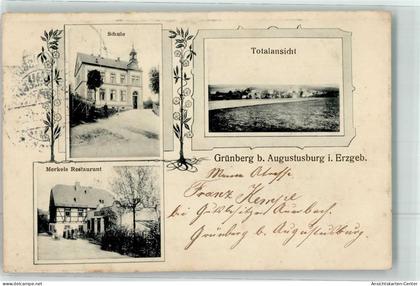 Schule
Totalansicht
Merkels Restaurant
Grünberg b. Augustusburg i. Erzgeb.
Meine Adresse.
Franz Hempel
bei Gutsbesitzer Auerbach.
Grünberg b. Augustusburg.
www.Ansichtskarten-Center.de